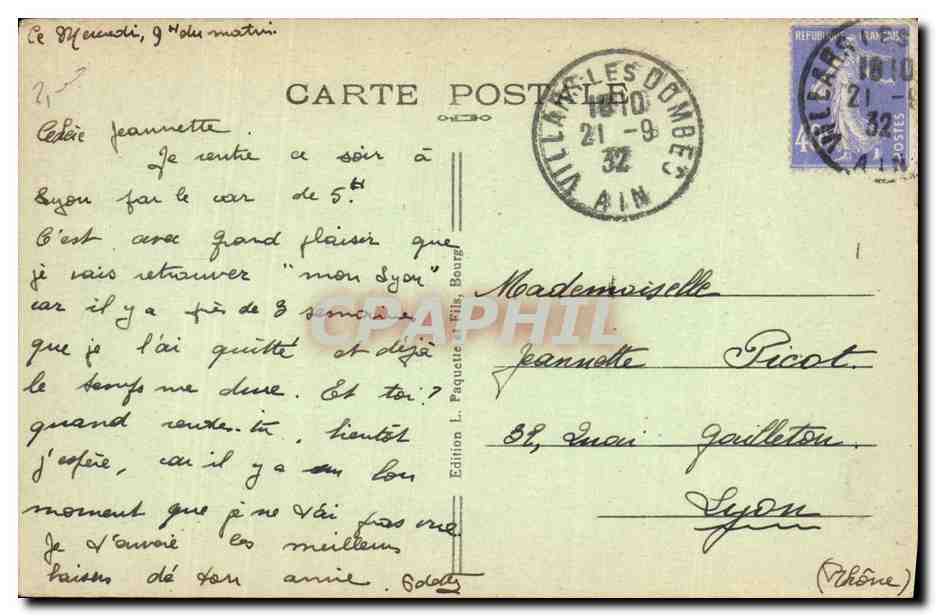 Ce Mercredi, 9H du matin.
2,-
CARTE POSTALE
VILLARS-LES DOMBES
18 10
21 -9
32
AIN
REPUBLIQUE FRANCAISE
POSTES
VILLARS
18 10
21 -9
32
AIN
Jeannette.
Je rentre ce soir à
Lyon par le car de 5H.
C'est avec grand plaisir que
je vais retrouver "mon Lyon"
car il y a près de 3 semaines
que je l'ai quitté et déjà
le temps me dure. Et toi?
quand rentres-tu, bientôt
j'espère, car il y a un bon
moment que je ne t'ai pas vue
Je t'envoie les meilleurs
baisers de ton amie. Odette
Edition L. Paquette et Fils, Bourg
CPAPHIL
Mademoiselle
Jeannette Picot.
32, Quai Gailleton.
Lyon
(Rhône)